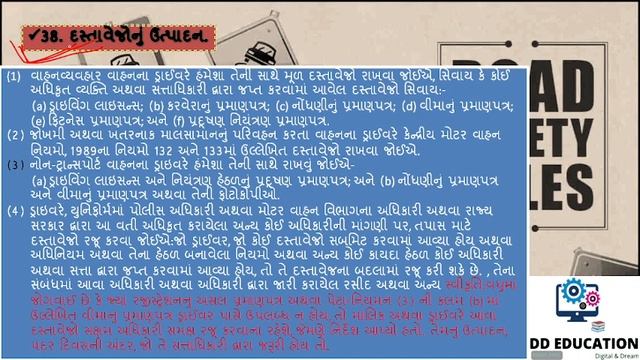 ✓38. દસ્તાવેજોનું ઉત્પાદન.
(1) વાહનવ્યવહાર વાહનના ડ્રાઈવરે હંમેશા તેની સાથે મૂળ દસ્તાવેજો રાખવા જોઈએ, સિવાય કે કોઈ
અધિકૃત વ્યક્તિ અથવા સત્તાધિકારી દ્વારા જપ્ત કરવામાં આવેલ દસ્તાવેજો સિવાય:-
(a) ડ્રાઇવિંગ લાઇસન્સ; (b) કરવેરાનું પ્રમાણપત્ર; (c) નોંધણીનું પ્રમાણપત્ર; (d) વીમાનું પ્રમાણપત્ર;
(e) ફિટનેસ પ્રમાણપત્ર; અને (f) પ્રદૂષણ નિયંત્રણ પ્રમાણપત્ર.
(2) જોખમી અથવા ખતરનાક માલસામાનનું પરિવહન કરતા વાહનના ડ્રાઈવરે કેન્દ્રીય મોટર વાહન
નિયમો, 1989ના નિયમો 132 અને 133માં ઉલ્લેખિત દસ્તાવેજો રાખવા જોઈએ.
(3) નોન-ટ્રાન્સપોર્ટ વાહનના ડ્રાઇવરે હંમેશા તેની સાથે રાખવું જોઈએ-
(a) ડ્રાઇવિંગ લાઇસન્સ અને નિયંત્રણ હેઠળનું પ્રદૂષણ પ્રમાણપત્ર; અને (b) નોંધણીનું પ્રમાણપત્ર
અને વીમાનું પ્રમાણપત્ર અથવા તેની ફોટોકોપીઓ.
(4) ડ્રાઇવરે, યુનિફોર્મમાં પોલીસ અધિકારી અથવા મોટર વાહન વિભાગના અધિકારી અથવા રાજ્ય
સરકાર દ્વારા આ વતી અધિકૃત કરાયેલા અન્ય કોઈ અધિકારીની માંગણી પર, તપાસ માટે
દસ્તાવેજો રજૂ કરવા જોઈએ:-જો ડ્રાઈવર, જો કોઈ દસ્તાવેજો સબમિટ કરવામાં આવ્યા હોય અથવા
અધિનિયમ અથવા તેના હેઠળ બનાવેલા નિયમો અથવા અન્ય કોઈ કાયદા હેઠળ કોઈ અધિકારી
અથવા સત્તા દ્વારા જપ્ત કરવામાં આવ્યા હોય, તો તે દસ્તાવેજના બદલામાં રજૂ કરી શકે છે. , તેના
સંબંધમાં આવા અધિકારી અથવા અધિકારી દ્વારા જારી કરાયેલ રસીદ અથવા અન્ય સ્વીકૃતિ:વધુમાં
જોગવાઈ છે કે જ્યાં રજીસ્ટ્રેશનનું અસલ પ્રમાણપત્ર અથવા પેટા નિયમન (3) ની કલમ (b) માં
ઉલ્લેખિત વીમાનું પ્રમાણપત્ર ડ્રાઈવર પાસે ઉપલબ્ધ ન હોય, તો માલિક અથવા ડ્રાઈવરે આવા
દસ્તાવેજો સક્ષમ અધિકારી સમક્ષ રજૂ કરવાના રહેશે, જેમણે નિર્દેશ આપ્યો હતો. તેમનું ઉત્પાદન,
પંદર દિવસની અંદર, જો તે સત્તાધિકારી દ્વારા જરૂરી હોય તો.
ROAD
SAFETY
RULES
DD EDUCATION
Digital & Dream